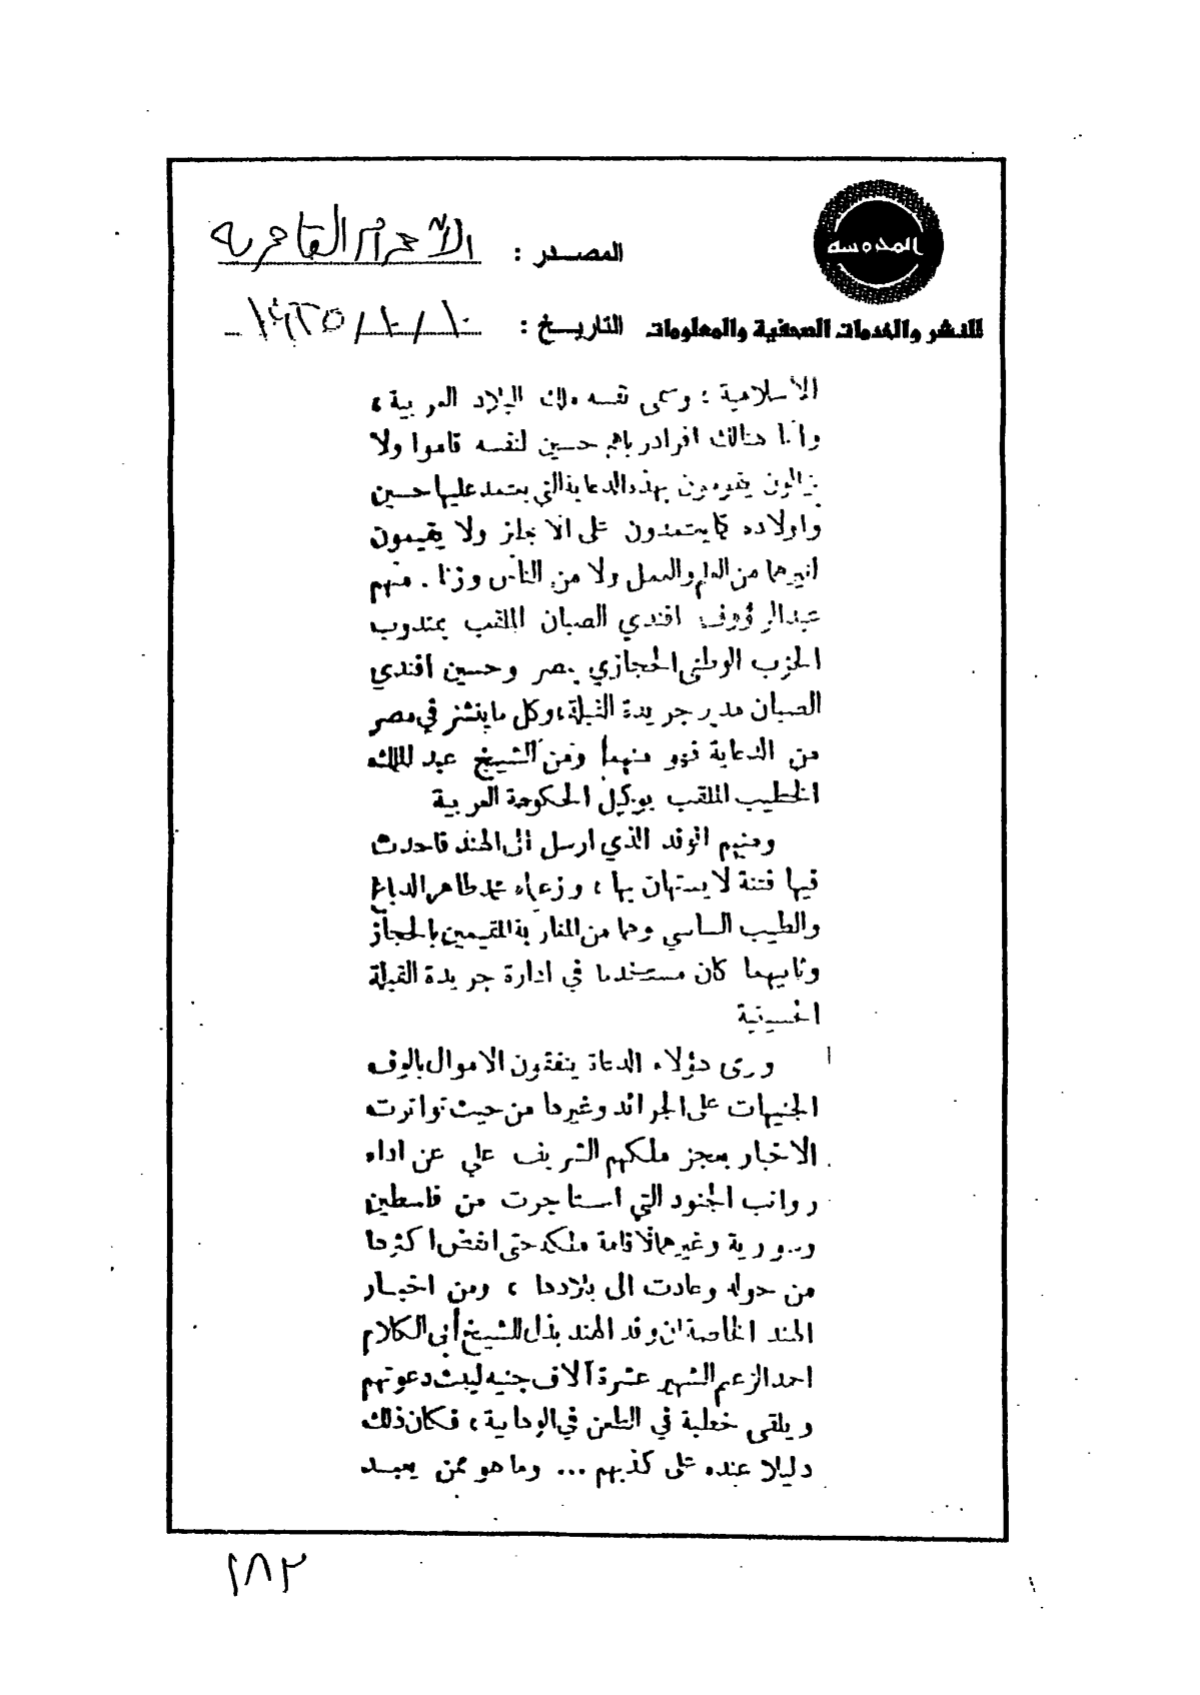 المدوسه
للنشر والخدمات الصحفية والمعلومات
المصدر : الأهرام القاهرية
التاريخ : ١٠/١٠/
الأسلامية ؛ وسمى نفسه ملك البلاد العربية ،
وانا هنالك افرادر باهم حسين لنفسه قاموا ولا
يزالون يقومون بهذه الدعاية التي يعتمد عليها حسين
واولاده كما يعتمدون على الانجليز ولا يقيمون
لغيرهما من العلم والعمل ولا من الناس وزنا . منهم
عبد الرؤوف افندي الصبان الملقب بمندوب
الحزب الوطني الحجازي بمصر وحسين افندي
الصبان مدير جريدة القبلة ، وكل ماينشر في مصر
من الدعاية فهو منهما ومن الشيخ عبد الملك
الخطيب الملقب بوكيل الحكومة العربية
ومنهم الوفد الذي ارسل الى الهند فاحدث
فيها فتنة لا يستهان بها ، وزعماه محمد طاهر الدباغ
والطيب الساسي وهما من المغاربة المقيمين بالحجاز
وثانيهما كان مستخدما في ادارة جريدة القبلة
الحسينية
ونرى هؤلاء الدعاة ينفقون الاموال بالوف
الجنيهات على الجرائد وغيرها من حيث تواترت
الاخبار بعجز ملكهم الشريف علي عن اداء
رواتب الجنود التي استاجرت من فلسطين
وسورية وغيرهما لاقامة ملكه حتى انفض اكثرها
من حوله وعادت الى بلادها ، ومن اخبار
الهند الخاصة ان وفد الهند بذل للشيخ أبي الكلام
احمد الزعيم الشهير عشرة آلاف جنيه ليبث دعوتهم
ويلقى خطبة في الطعن في الوهابية ، فكان ذلك
دليلا عنده على كذبهم ... وما هو ممن يعبد
١٨٢